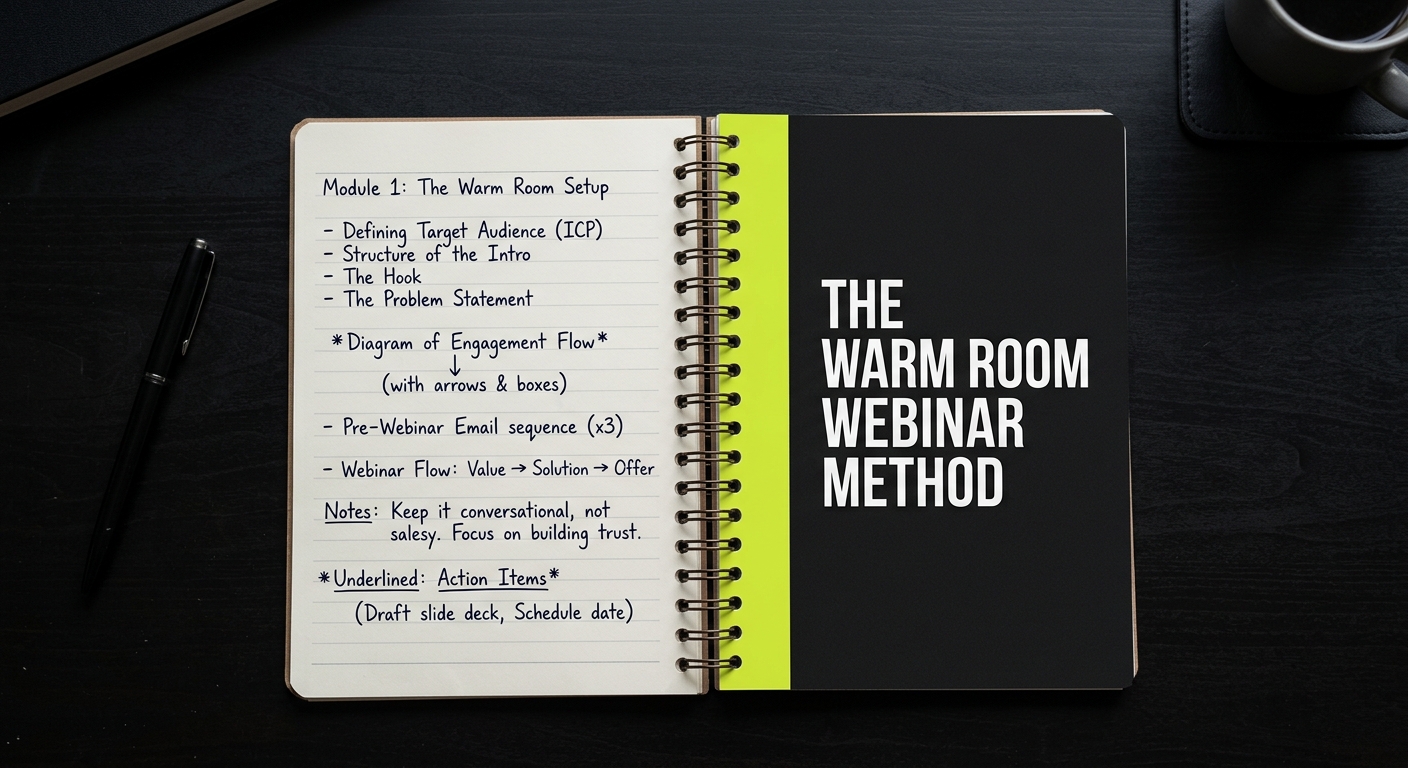 Module 1: The Warm Room Setup
- Defining Target Audience (ICP)
- Structure of the Intro
- The Hook
- The Problem Statement
*Diagram of Engagement Flow*
↓
(with arrows & boxes)
- Pre-Webinar Email sequence (x3)
- Webinar Flow: Value → Solution → Offer
Notes: Keep it conversational, not
salesy. Focus on building trust.
*Underlined: Action Items*
(Draft slide deck, Schedule date)
THE
WARM ROOM
WEBINAR
METHOD